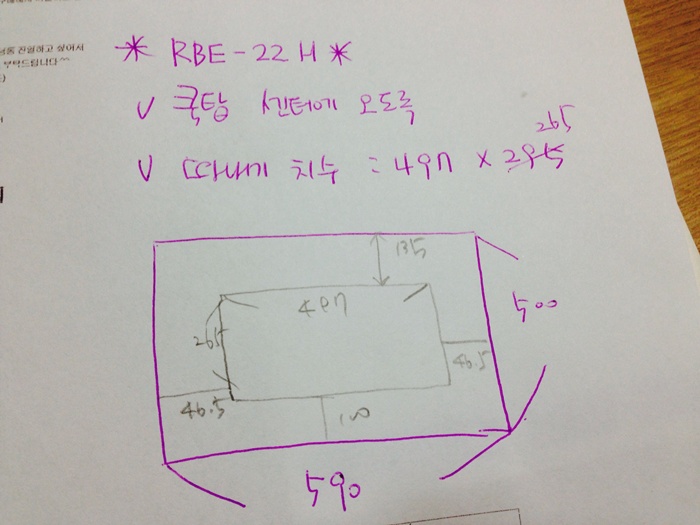 넣통 진열하고 싶어서
부탁드립니다^^
* RBE-22H *
V 쿡탑 센터에 오도록
265
V 따내기 치수 : 497 x 2945
135
497
500
265
46.5
46.5
100
590